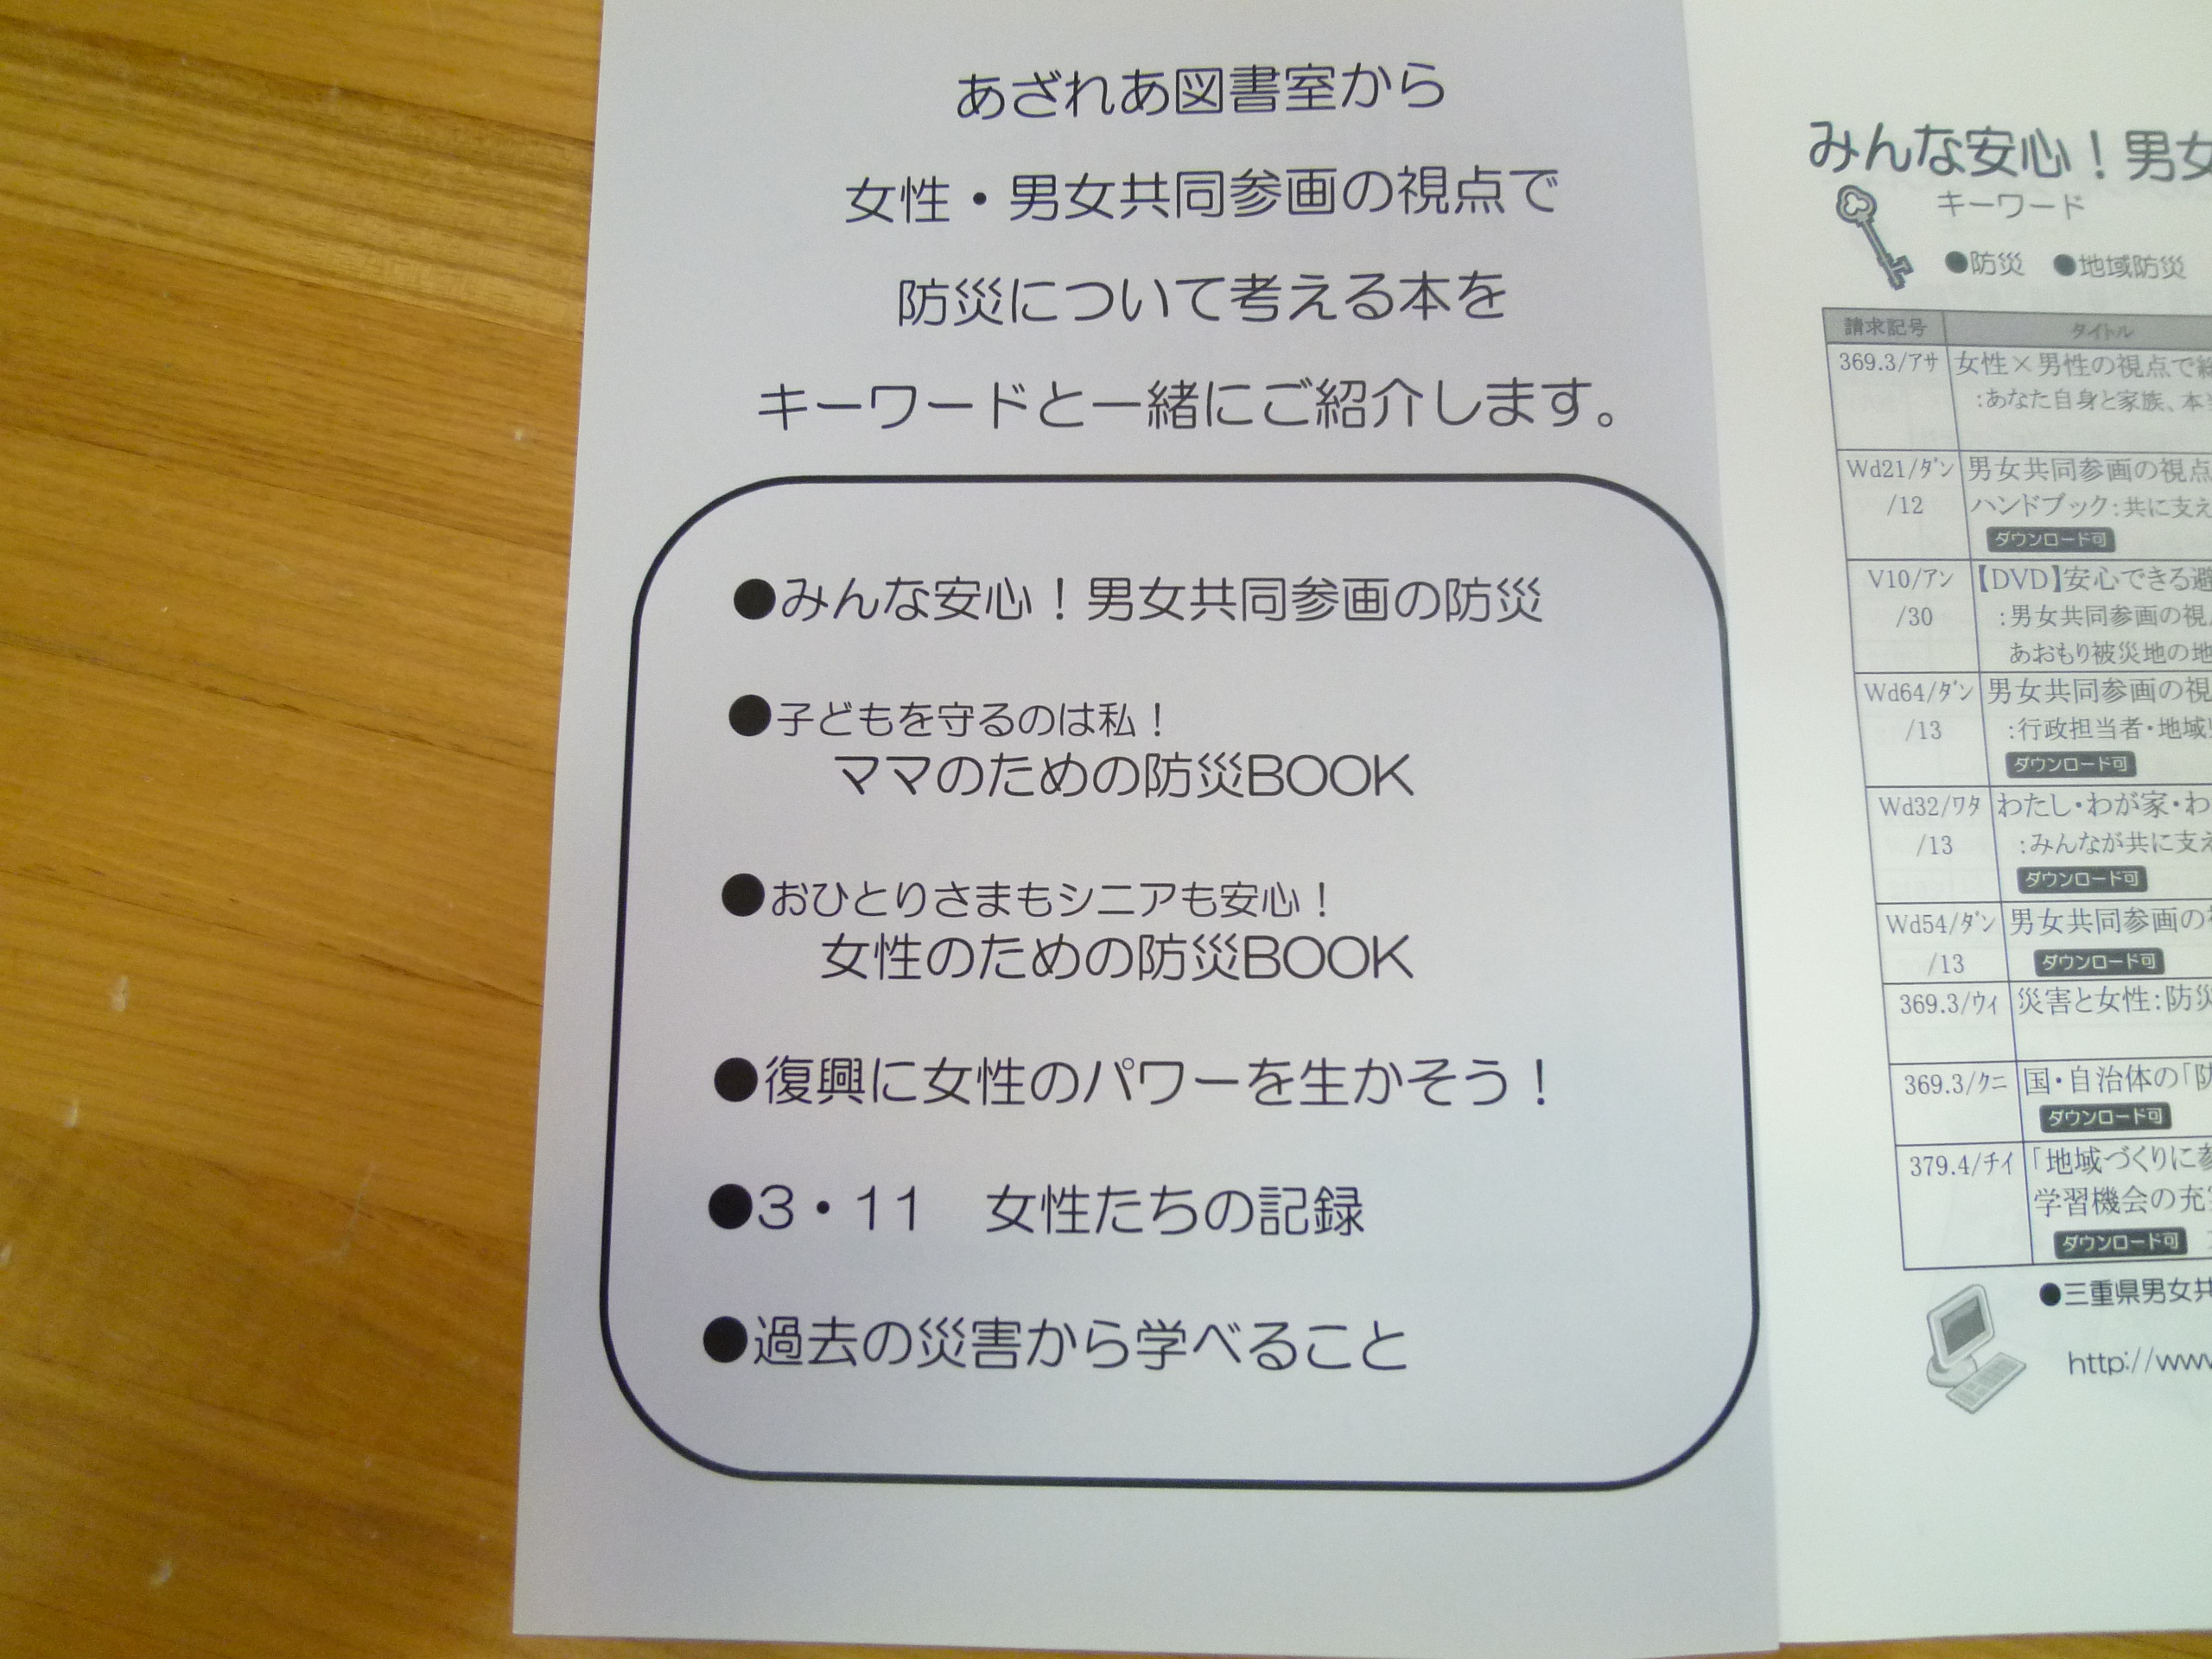 あざれあ図書室から
女性・男女共同参画の視点で
防災について考える本を
キーワードと一緒にご紹介します。
●みんな安心！男女共同参画の防災
●子どもを守るのは私！
ママのための防災BOOK
●おひとりさまもシニアも安心！
女性のための防災BOOK
●復興に女性のパワーを生かそう！
●3・11　女性たちの記録
●過去の災害から学べること
みんな安心！男女
キーワード
●防災 ●地域防災
請求記号 タイトル
369.3/アサ 女性×男性の視点で総
:あなた自身と家族、本当
Wd21/ダン 男女共同参画の視点
/12 ハンドブック:共に支え
ダウンロード可
V10/アン 【DVD】安心できる避
/30 :男女共同参画の視
あおもり被災地の地
Wd64/ダン 男女共同参画の視
/13 :行政担当者・地域
ダウンロード可
Wd32/ワタ わたし・わが家・わ
/13 :みんなが共に支え
ダウンロード可
Wd54/ダン 男女共同参画の
/13 ダウンロード可
369.3/ウィ 災害と女性:防災
369.3/クニ 国・自治体の「防
ダウンロード可
379.4/チイ 「地域づくりに参
学習機会の充
ダウンロード可
●三重県男女共
http://www